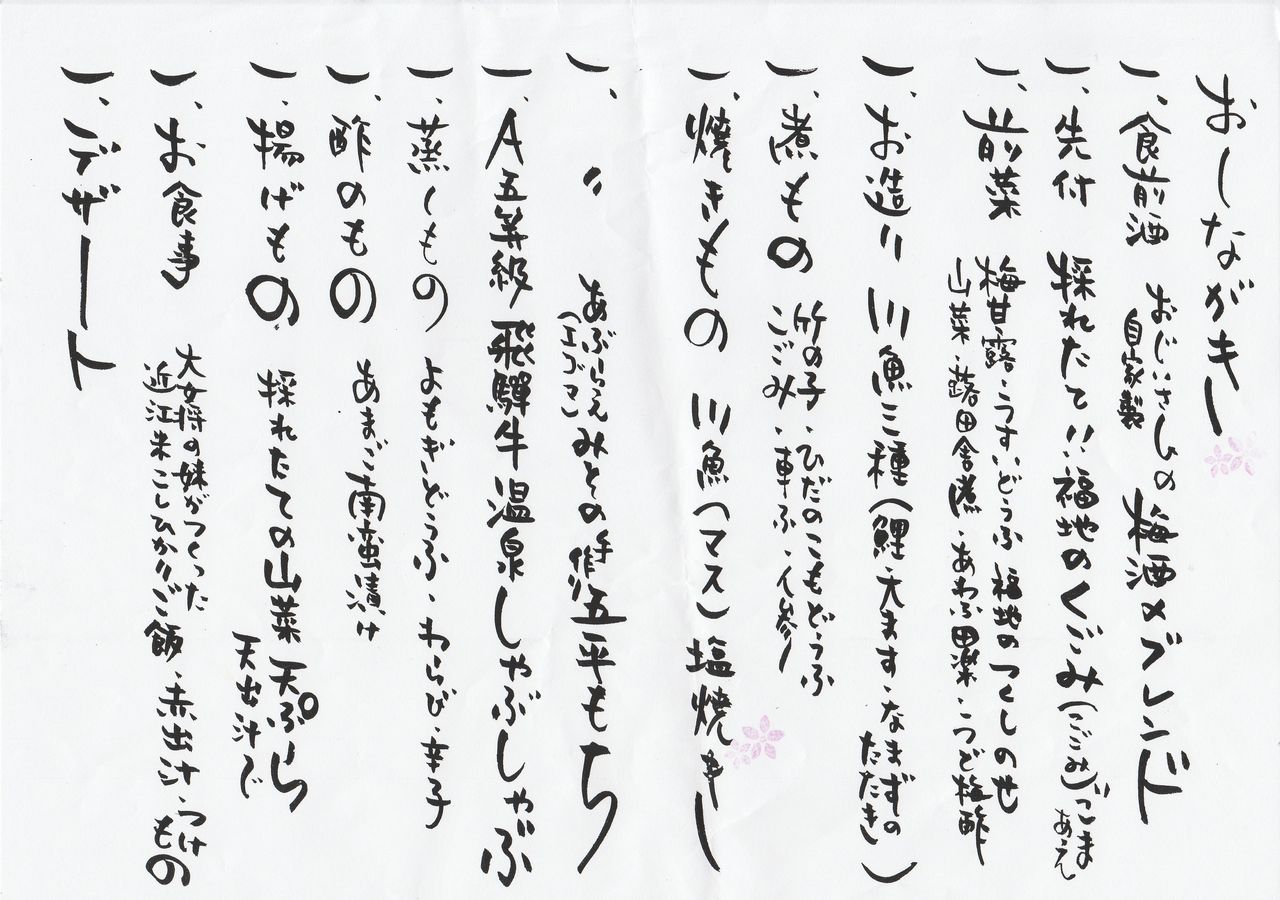 おしながき
一、食前酒 おじいさんの 自家製 梅酒〆ブレンド
一、先付 採れたて!!福地のくごみ(こごみ)ごまあえ
一、前菜 梅甘露・うすいどうふ 福地のつくしの世
山菜・蕗田舎煮・あわふ田楽・つど梅酢
一、お造り 川魚三種(鯉・大ます・なまずのたたき)
一、煮もの 竹の子・ひだのこもどうふ
こごみ・車ふ・人参
一、焼きもの 川魚(マス)塩焼き
一、〃 あぶらえ(エゴマ)みその手作り五平もち
一、A五等級飛騨牛温泉しゃぶしゃぶ
一、蒸しもの よもぎどうふ・わらび・辛子
一、酢のもの あまご南蛮漬け
一、揚げもの 採れたての山菜天ぷら
天出汁で
一、お食事 大女将の妹がつくった
近江米こしひかりご飯・赤出汁・つけもの
一、デザート